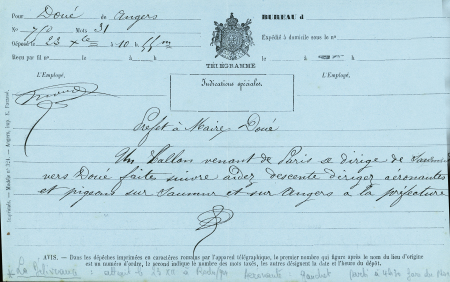 Pour Doué de Angers
BUREAU d
N° Mots 31
Déposé le 23 Xbre à 10 h 55 m
Expédié à domicile sous le n°
Reçu par fil n° le à h le à
TÉLÉGRAMME
L'Employé,
L'Employé,
Indications spéciales.
Préfet à Maire Doué
Un Ballon venant de Paris se dirige de Saumur
vers Doué faites suivre aidez descente dirigez aéronautes
et pigeons sur Saumur et sur Angers à la préfecture
Imprimés. — Modèle n° 221. — Angers, imp.
AVIS. — Dans les dépêches imprimées en caractères romains par l'appareil télégraphique, le premier nombre qui figure après le nom du lieu d'origine
est un numéro d'ordre, le second indique le nombre des mots taxés, les autres désignent la date et l'heure du dépôt.
La Délivrance : 23 XII à aéronaute : Gauchet parti à 4h30 Gare du Nord